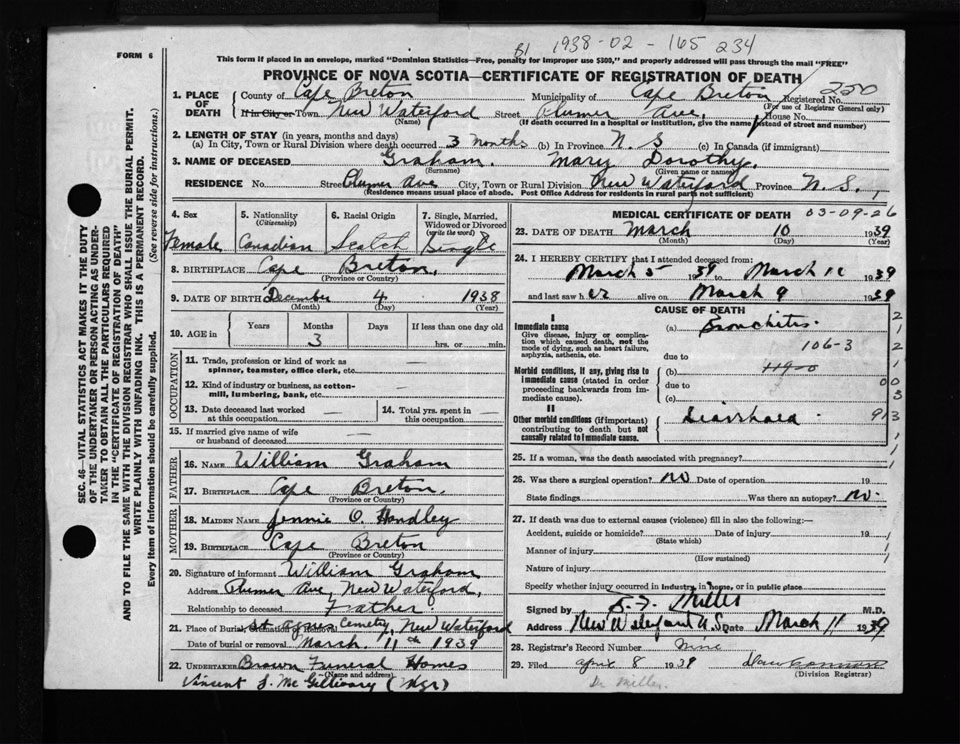 B1 1938-02-165234
FORM 6
This form if placed in an envelope, marked "Dominion Statistics—Free, penalty for improper use $300," and properly addressed will pass through the mail "FREE"
PROVINCE OF NOVA SCOTIA—CERTIFICATE OF REGISTRATION OF DEATH
1. PLACE OF DEATH
County of Cape Breton Municipality of Cape Breton Registered No. 250
(For use of Registrar General only)
If in City or Town. New Waterford Street Plumer Ave, House No.
(Name) (If death occurred in a hospital or institution, give the name instead of street and number)
2. LENGTH OF STAY (in years, months and days)
(a) In City, Town or Rural Division where death occurred 3 months (b) In Province N. S (c) In Canada (if immigrant)
3. NAME OF DECEASED Graham. Mary Dorothy.
(Surname) (Given name or names)
RESIDENCE No. Street Plumer Ave City, Town or Rural Division New Waterford Province N. S.,
(Residence means usual place of abode. Post Office Address for residents in rural parts not sufficient)
SEC. 46—VITAL STATISTICS ACT MAKES IT THE DUTY
OF THE UNDERTAKER OR PERSON ACTING AS UNDER-
TAKER TO OBTAIN ALL THE PARTICULARS REQUIRED
IN THE "CERTIFICATE OF REGISTRATION OF DEATH"
AND TO FILE THE SAME WITH THE DIVISION REGISTRAR WHO SHALL ISSUE THE BURIAL PERMIT.
WRITE PLAINLY WITH UNFADING INK. THIS IS A PERMANENT RECORD.
Every item of information should be carefully supplied. (See reverse side for instructions.)
4. Sex
Female
5. Nationality
(Citizenship)
Canadian
6. Racial Origin
Scotch
7. Single, Married,
Widowed or Divorced
(write the word)
Single
8. BIRTHPLACE Cape Breton,
(Province or Country)
9. DATE OF BIRTH December 4 1938
(Month) (Day) (Year)
10. AGE in
Years Months Days If less than one day old
3
hrs. or min.
OCCUPATION
11. Trade, profession or kind of work as
spinner, teamster, office clerk, etc. —
12. Kind of industry or business, as cotton-
mill, lumbering, bank, etc. —
13. Date deceased last worked
at this occupation —
14. Total yrs. spent in
this occupation —
15. If married give name of wife
or husband of deceased —
FATHER
16. NAME William Graham
17. BIRTHPLACE Cape Breton.
(Province or Country)
MOTHER
18. MAIDEN NAME Jennie O. Handley
19. BIRTHPLACE Cape Breton
(Province or Country)
20. Signature of informant William Graham
Address Plumer Ave, New Waterford,
Relationship to deceased Father
21. Place of Burial, Cremation or Removal St Agnes Cemetry, New Waterford
Date of burial or removal March. 11th 1939
22. UNDERTAKER Brown Funeral Homes
(Name and address)
Vincent J. McGillivary (Mgr)
MEDICAL CERTIFICATE OF DEATH 03-09-26
23. DATE OF DEATH March 10 1939
(Month) (Day) (Year)
24. I HEREBY CERTIFY that I attended deceased from:
March 5 1939 to March 10 1939
and last saw her alive on March 9 1939
CAUSE OF DEATH
I
Immediate cause
Give disease, injury or complica-
tion which caused death, not the
mode of dying, such as heart failure,
asphyxia, asthenia, etc.
(a) Bronchitis.
106-3
due to
Morbid conditions, if any, giving rise to
immediate cause (stated in order
proceeding backwards from im-
mediate cause).
(b) 119-0
due to
(c)
II
Other morbid conditions (if important)
contributing to death but not
causally related to immediate cause.
Diarrhaea.
25. If a woman, was the death associated with pregnancy?
26. Was there a surgical operation? no Date of operation 19
State findings Was there an autopsy? no.
27. If death was due to external causes (violence) fill in also the following:—
Accident, suicide or homicide? Date of injury 19
(State which)
Manner of injury
(How sustained)
Nature of injury
Specify whether injury occurred in industry, in home, or in public place
Signed by Miller M.D.
Address New Waterford N.S. Date March 11 1939
28. Registrar's Record Number Nine
29. Filed april 8 1939
(Division Registrar)
Dr Miller